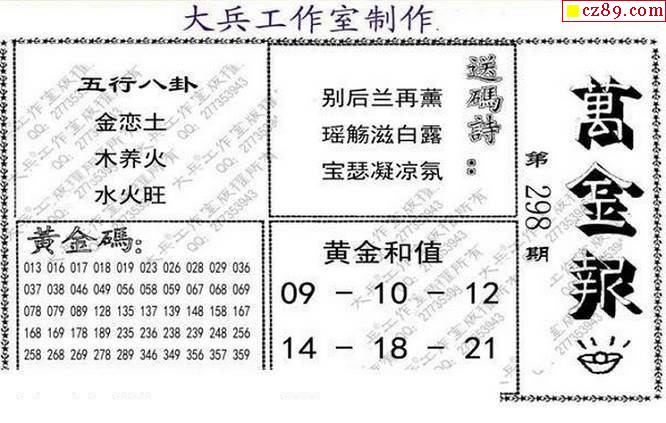 大兵工作室制作.
cz89.com
五行八卦
金恋土
木养火
水火旺
送碼詩：
别后兰再薰
瑶觞滋白露
宝瑟凝凉氛
萬金報
第298期
黃金碼：
013 016 017 018 019 023 026 028 029 036
037 038 046 049 056 057 059 067 068 069
078 079 089 128 135 137 139 148 157 167
168 169 178 235 236 238 239 245 249 256
258 268 269 278 289 346 349 356 357 359
黄金和值
09 - 10 - 12
14 - 18 - 21
大兵工作室版權所有
QQ: 277353943